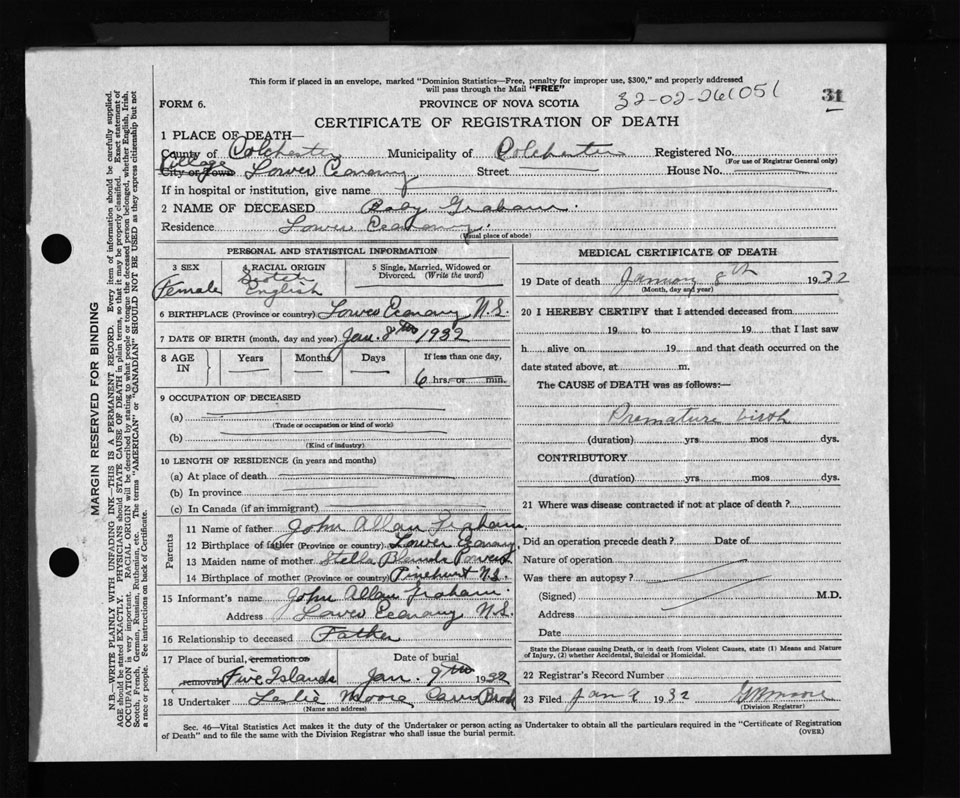 This form if placed in an envelope, marked "Dominion Statistics—Free, penalty for improper use, $300," and properly addressed
will pass through the Mail "FREE"
FORM 6. PROVINCE OF NOVA SCOTIA 32-02-261051 31
CERTIFICATE OF REGISTRATION OF DEATH
1 PLACE OF DEATH—
County of Colchester Municipality of Colchester Registered No.
(For use of Registrar General only)
Village
City or Town Lower Economy Street House No.
If in hospital or institution, give name
2 NAME OF DECEASED Baby Graham.
Residence Lower Economy.
(Usual place of abode)
PERSONAL AND STATISTICAL INFORMATION
3 SEX 4 RACIAL ORIGIN 5 Single, Married, Widowed or
Divorced. (Write the word)
Female English
6 BIRTHPLACE (Province or country) Lower Economy N.S.
7 DATE OF BIRTH (month, day and year) Jan. 8th 1932
8 AGE IN Years Months Days If less than one day,
6 hrs. or min.
9 OCCUPATION OF DECEASED
(a)
(Trade or occupation or kind of work)
(b)
(Kind of industry)
10 LENGTH OF RESIDENCE (in years and months)
(a) At place of death
(b) In province
(c) In Canada (if an immigrant)
Parents
11 Name of father John Allan Graham
12 Birthplace of father (Province or country) Lower Economy
13 Maiden name of mother Stella Blanche
14 Birthplace of mother (Province or country) N.S.
15 Informant's name John Allan Graham.
Address Lower Economy N.S.
16 Relationship to deceased Father
17 Place of burial, cremation or Date of burial
removal Five Islands Jan. 9th 1932
18 Undertaker Leslie Moore Brook
(Name and address)
MEDICAL CERTIFICATE OF DEATH
19 Date of death January 8th 1932
(Month, day and year)
20 I HEREBY CERTIFY that I attended deceased from
19 to 19 that I last saw
h alive on 19 and that death occurred on the
date stated above, at m.
The CAUSE of DEATH was as follows:—
Premature birth
(duration) yrs mos dys.
CONTRIBUTORY
(duration) yrs mos dys.
21 Where was disease contracted if not at place of death?
Did an operation precede death? Date of
Nature of operation
Was there an autopsy?
(Signed) M.D.
Address
Date
State the Disease causing Death, or in death from Violent Causes, state (1) Means and Nature
of Injury, (2) whether Accidental, Suicidal or Homicidal.
22 Registrar's Record Number
23 Filed Jan 9 1932 Moore
(Division Registrar)
Sec. 46—Vital Statistics Act makes it the duty of the Undertaker or person acting as Undertaker to obtain all the particulars required in the "Certificate of Registration
of Death" and to file the same with the Division Registrar who shall issue the burial permit. (OVER)
MARGIN RESERVED FOR BINDING
N.B.—WRITE PLAINLY WITH UNFADING INK—THIS IS A PERMANENT RECORD. Every item of information should be carefully supplied.
AGE should be stated EXACTLY. PHYSICIANS should STATE CAUSE OF DEATH in plain terms, so that it may be properly classified. Exact statement of
OCCUPATION is very important. RACIAL ORIGIN will be described by stating to what people or tongue the deceased person belonged, whether English, Irish,
Scotch, French, German, Russian, Ruthenian, etc. The terms "AMERICAN" or "CANADIAN" SHOULD NOT BE USED as they express citizenship but not
a race or people. See instructions on back of Certificate.